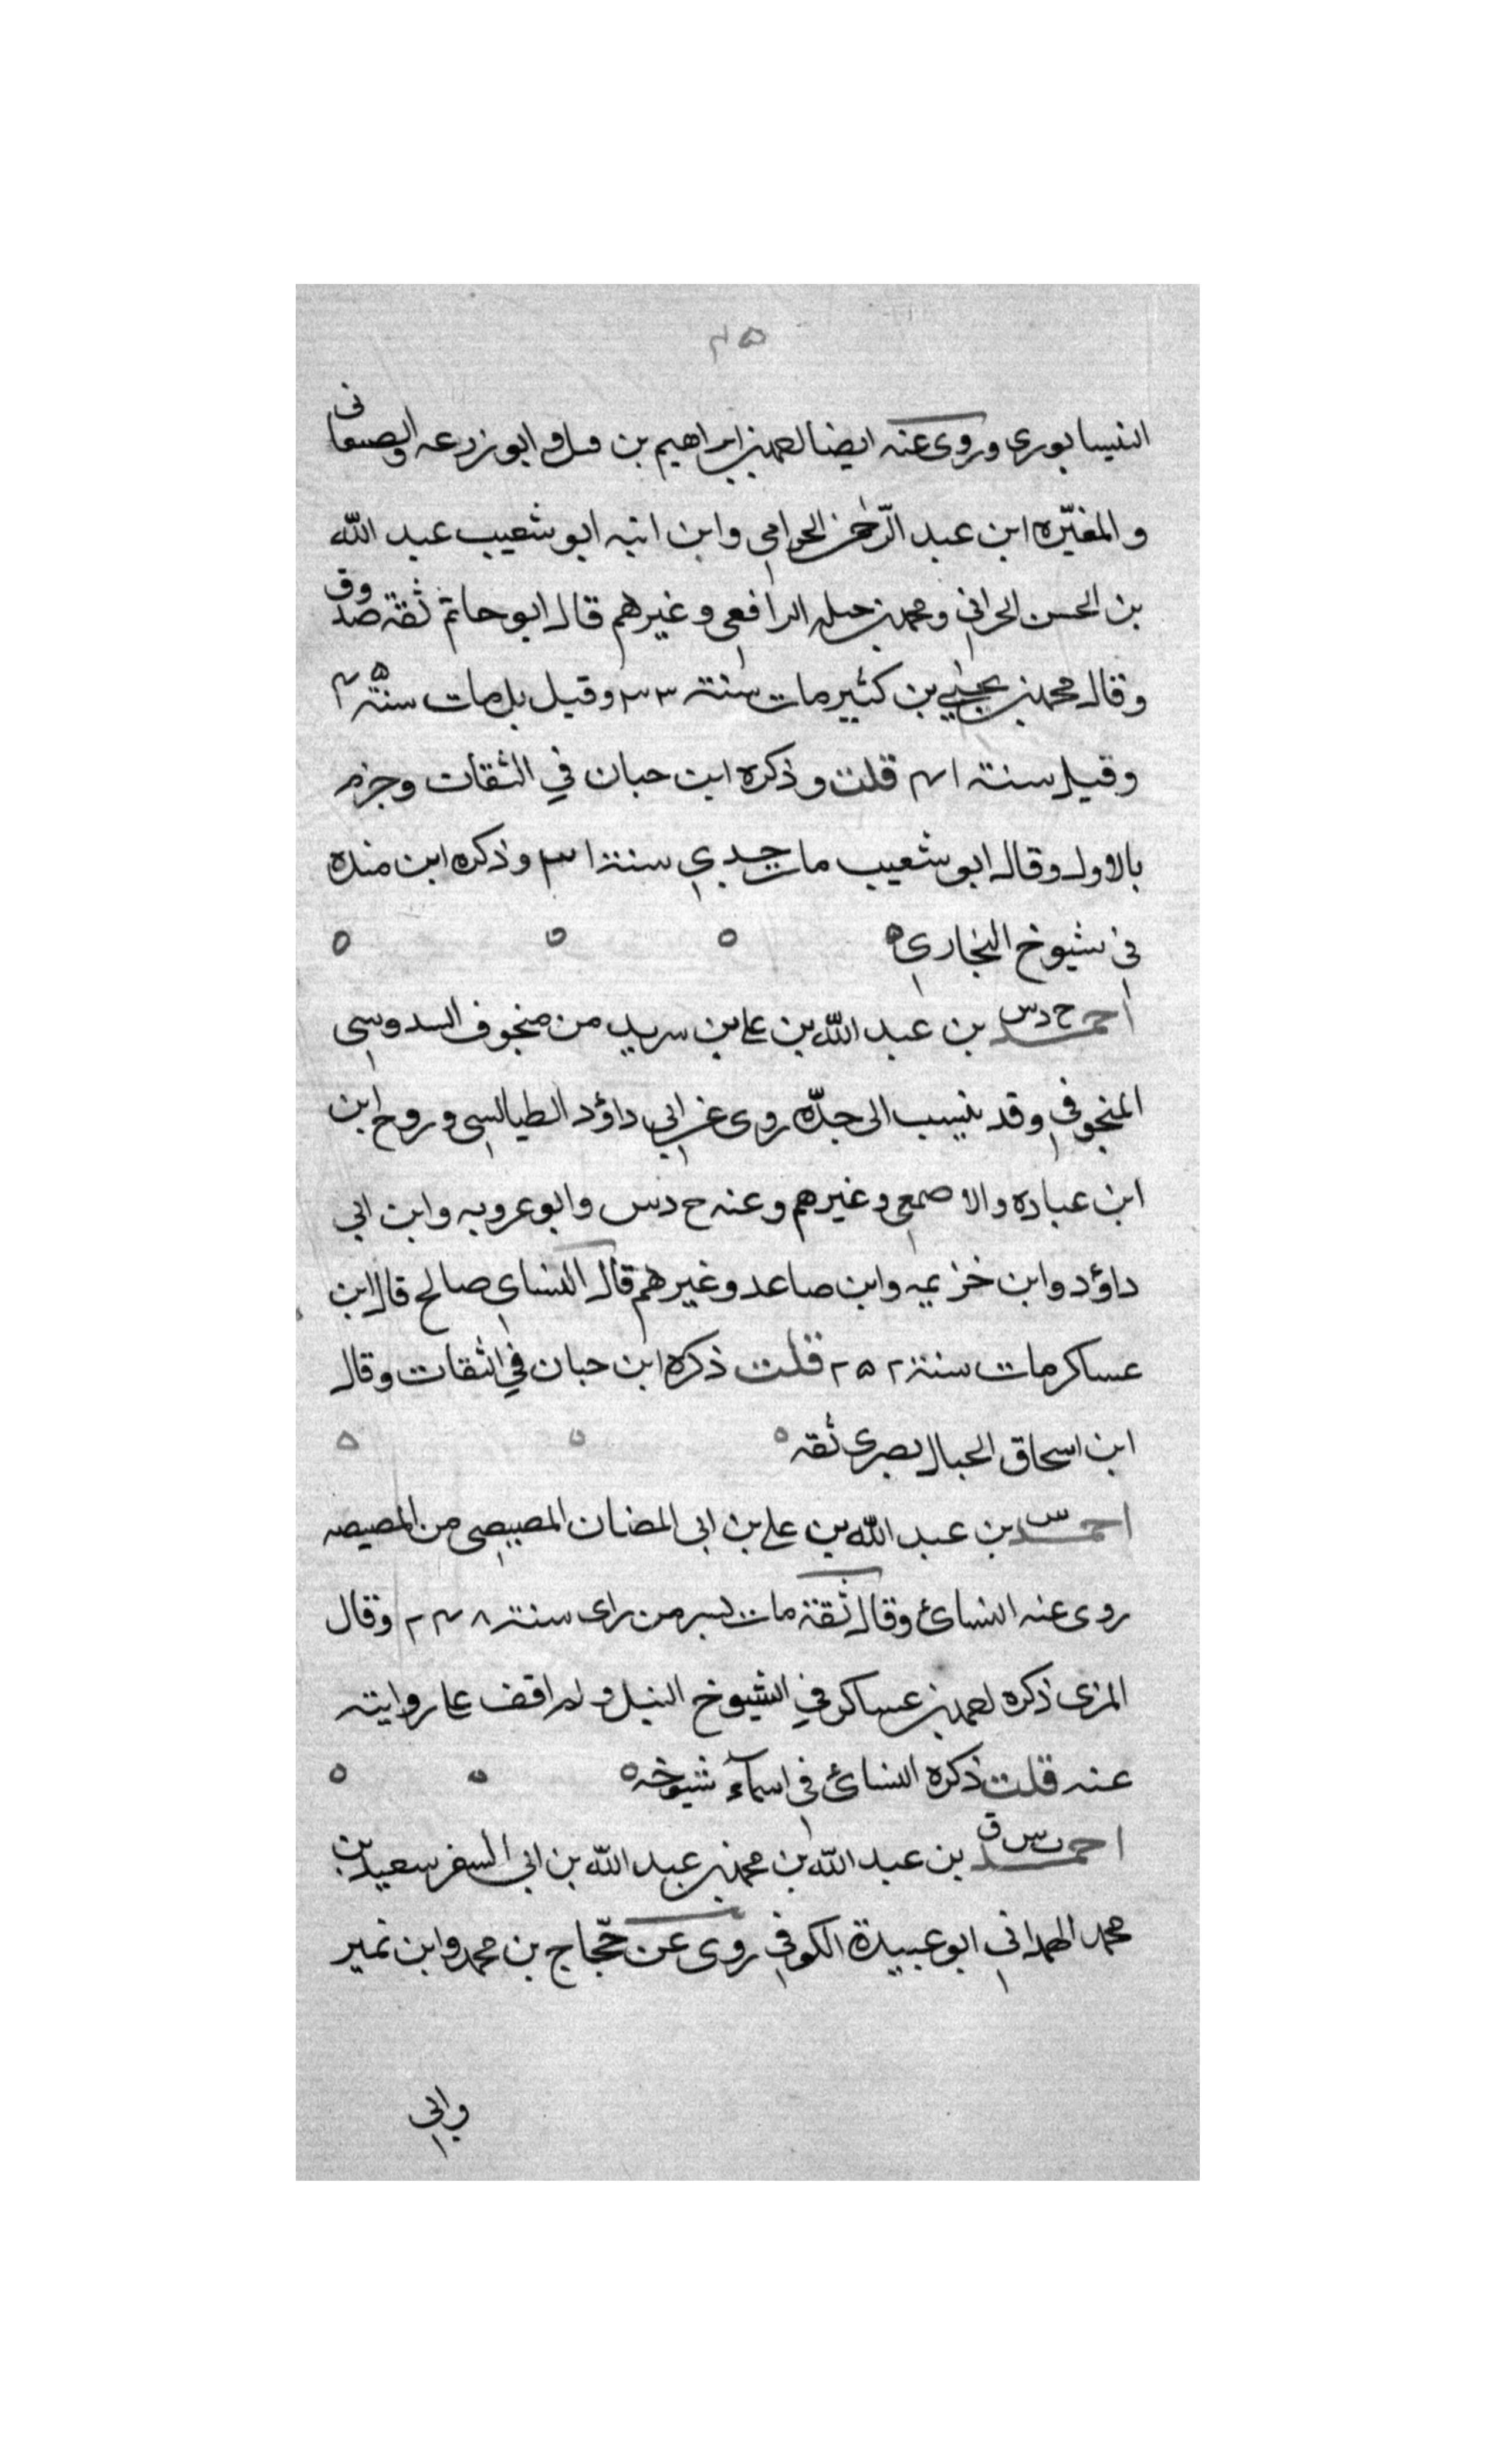 ٤٥
النيسابوري وروى عنه ايضا احمد بن ابراهيم بن فيل وابو زرعه والصغانى
والمغيّره ابن عبد الرّحمن الحرامي وابن ابنه ابو شعيب عبد اللّه
بن الحسن الحراني ومحمد بن جبله الرافعي وغيرهم قال ابو حاتم ثقة صدوق
وقال محمد بن يحيى بن كثير مات سنة ٣٣ وقيل بل مات سنة
وقيل سنة قلت وذكره ابن حبان في الثقات وجزم
بالاول وقال ابو شعيب مات جدي سنة وذكره ابن منده
في شيوخ البخاري
احمد خ د س بن عبد اللّه بن علي بن سويد من منجوف السدوسي
المنجوفي وقد ينسب الى جدّه روى عن ابي داؤد الطيالسي وروح ابن
ابن عباده والاصمعي وغيرهم وعنه خ د س وابو عروبه وابن ابي
داؤد وابن خزيمه وابن صاعد وغيرهم قال النساي صالح قال ابن
عساكر مات سنة ٢٥٢ قلت ذكره ابن حبان في الثقات وقال
ابن اسحاق الحبال بصرى ثقه
احمد س بن عبد اللّه بن علي بن ابى المضان المصيصى من المصيصه
روى عنه النسائ وقال ثقة مات بسر من راى سنة ٢٤٨ وقال
المزى ذكره ابن عساكر في الشيوخ النبل ولم اقف على روايته
عنه قلت ذكره النسائ فى اسمآء شيوخه
احمد ت س ق بن عبد اللّه بن محمد بن عبد اللّه بن ابى السفر سعيد بن
محمد الهمدانى ابو عبيدة الكوفي روى عن حجّاج بن محمد وابن نمير
وابى